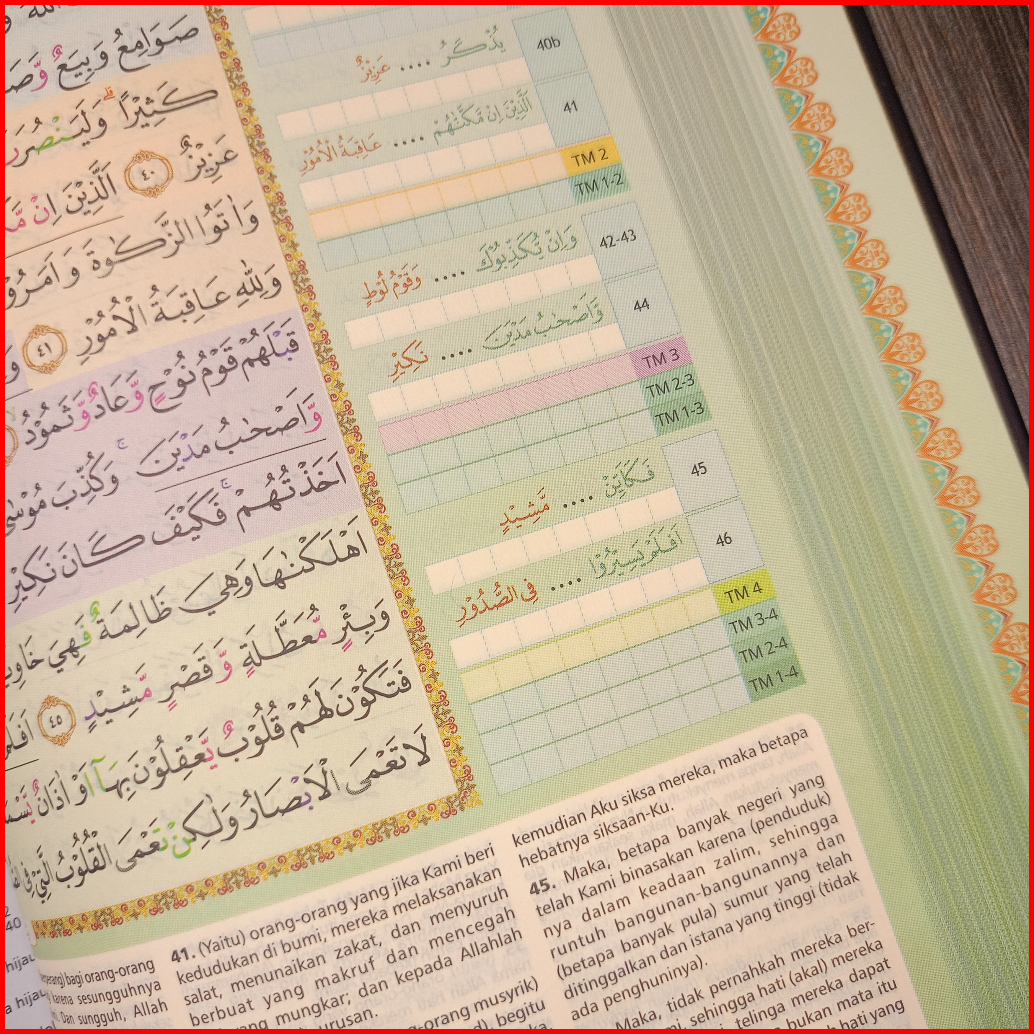 صَوَامِعُ وَبِيَعٌ
كَثِيْرًاۗ وَلَيَنْصُرَ
عَزِيْزٌ ٤٠ اَلَّذِيْنَ اِنْ
وَاٰتَوُا الزَّكٰوةَ وَاَمَرُوْ
وَلِلّٰهِ عَاقِبَةُ الْاُمُوْرِ ٤١
قَبْلَهُمْ قَوْمُ نُوْحٍ وَّعَادٌ وَّثَمُوْدُ
وَّاَصْحٰبُ مَدْيَنَۚ وَكُذِّبَ مُوْسٰى
اَخَذْتُهُمْۚ فَكَيْفَ كَانَ نَكِيْرِ
اَهْلَكْنٰهَا وَهِيَ ظَالِمَةٌ فَهِيَ
وَبِئْرٍ مُّعَطَّلَةٍ وَّقَصْرٍ مَّشِيْدٍ ٤٥
فَتَكُوْنَ لَهُمْ قُلُوْبٌ يَّعْقِلُوْنَ بِهَآ اَوْ اٰذَانٌ
لَا تَعْمَى الْاَبْصَارُ وَلٰكِنْ تَعْمَى الْقُلُوْبُ الَّتِيْ فِى
يُذْكَرُ .... عَزِيْزٌ 40b
اَلَّذِيْنَ اِنْ مَّكَّنّٰهُمْ .... عَاقِبَةُ الْاُمُوْرِ 41
TM 2
TM 1-2
وَاِنْ يُّكَذِّبُوْكَ .... وَقَوْمُ لُوْطٍ 42-43
وَّاَصْحٰبُ مَدْيَنَ .... نَكِيْرِ 44
TM 3
TM 2-3
TM 1-3
فَكَاَيِّنْ .... مَّشِيْدٍ 45
اَفَلَمْ يَسِيْرُوْا .... فِى الصُّدُوْرِ 46
TM 4
TM 3-4
TM 2-4
TM 1-4
40
bagi orang-orang
karena sesungguhnya
Dan sungguh, Allah
41. (Yaitu) orang-orang yang jika Kami beri
kedudukan di bumi, mereka melaksanakan
salat, menunaikan zakat, dan menyuruh
berbuat yang makruf dan mencegah
yang mungkar; dan kepada Allahlah
urusan.
orang musyrik)
begitu
kemudian Aku siksa mereka, maka betapa
hebatnya siksaan-Ku.
45. Maka, betapa banyak negeri yang
telah Kami binasakan karena (penduduk)
nya dalam keadaan zalim, sehingga
runtuh bangunan-bangunannya dan
(betapa banyak pula) sumur yang telah
ditinggalkan dan istana yang tinggi (tidak
ada penghuninya).
Maka, tidak pernahkah mereka ber-
sehingga hati (akal) mereka
telinga mereka dapat
bukan mata itu
hati yang